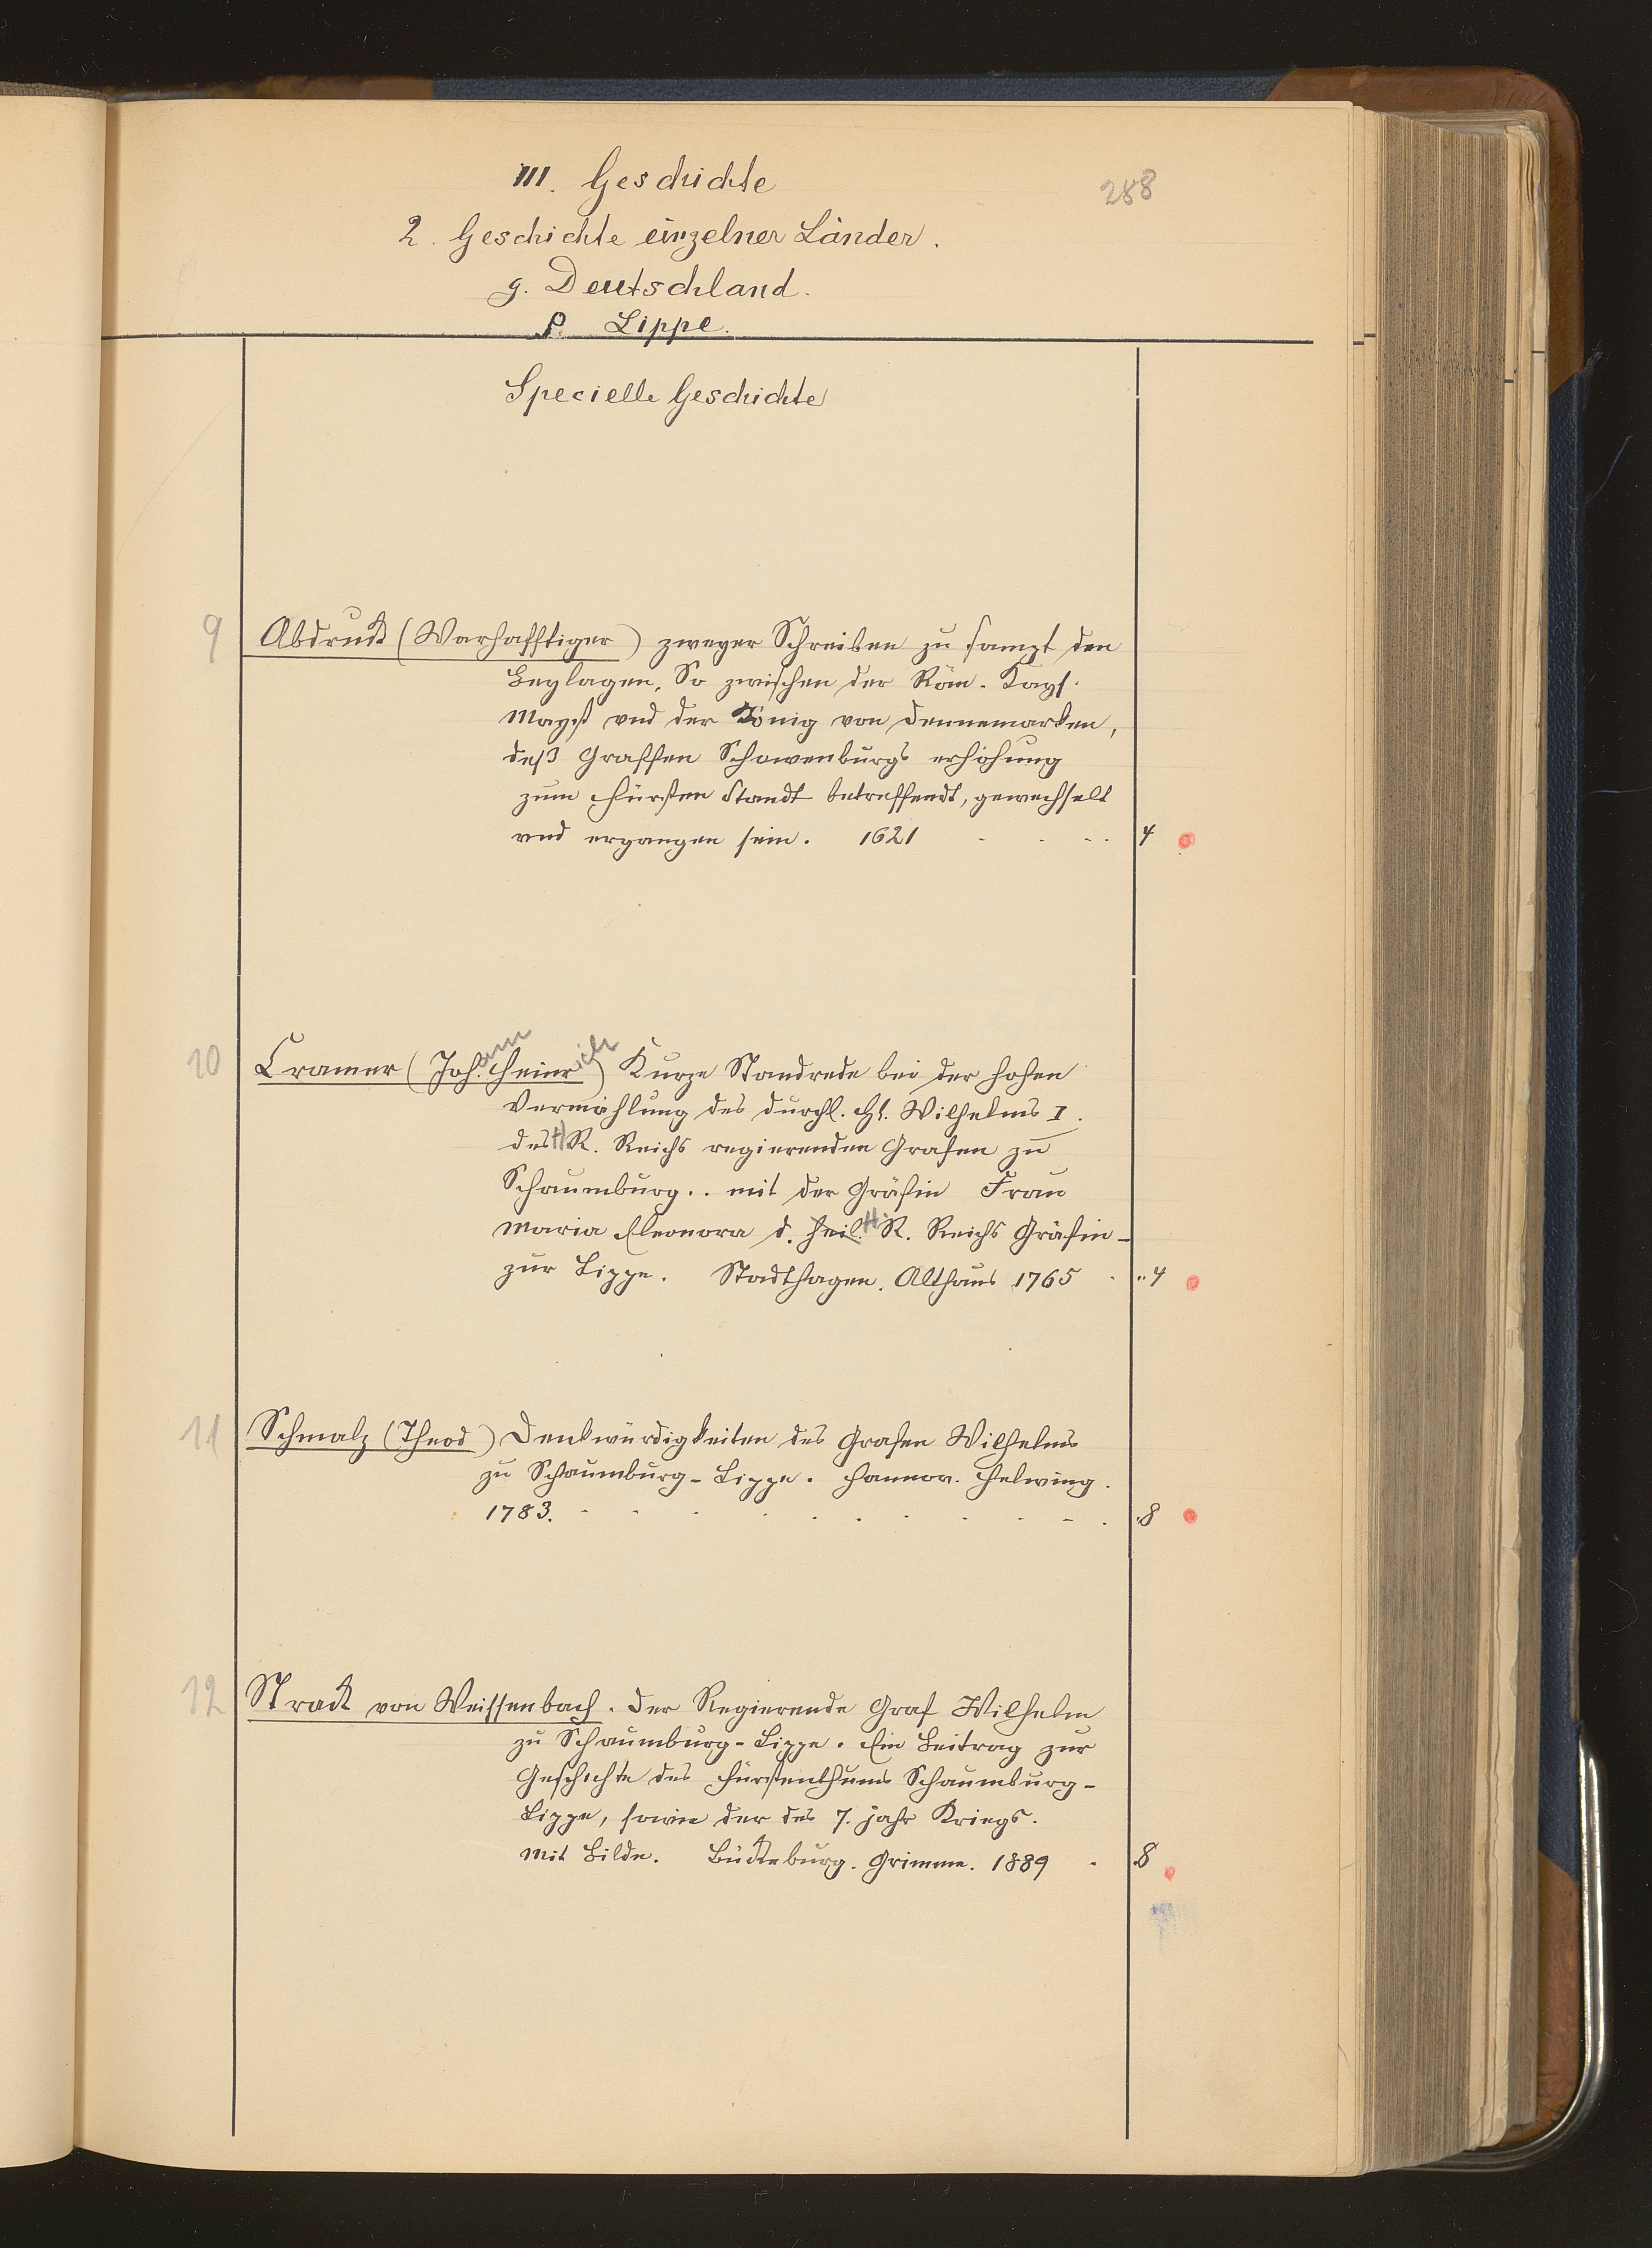 III. Geschichte
288
2. Geschichte einzelner Länder.
g. Deutschland.
Lippe.
Specielle Geschichte
9 Abdruck (Warhafftiger) zweyer Schreiben zu sampt den
Beylagen, So zwischen der Röm. Kays.
Mayst vnd der König von Dennemarken,
deß Graffen Schowenburgs erhöhung
zum Fürsten Standt betreffendt, gewechselt
vnd ergangen sein. 1621 4
10 Cramer (Johann Heinrich) Kurze Standrede bei der hohen
Vermählung des durchl. H. Wilhelms I.
des H R. Reichs regierenden Grafen zu
Schaumburg.. mit der Gräfin Frau
Maria Eleonora d. heil. H. R. Reichs Gräfin
zur Lippe. Stadthagen. Althaus 1765 4
11 Schmalz (Theod) Denkwürdigkeiten des Grafen Wilhelms
zu Schaumburg-Lippe. Hannov. Helwing.
1783. 8
12 Strack von Weissenbach. Der Regierende Graf Wilhelm
zu Schaumburg-Lippe. Ein Beitrag zur
Geschichte des Fürstenthums Schaumburg-
Lippe, sowie der des 7. jahr Kriegs.
Mit Bilde. Bückeburg. Grimme. 1889 8